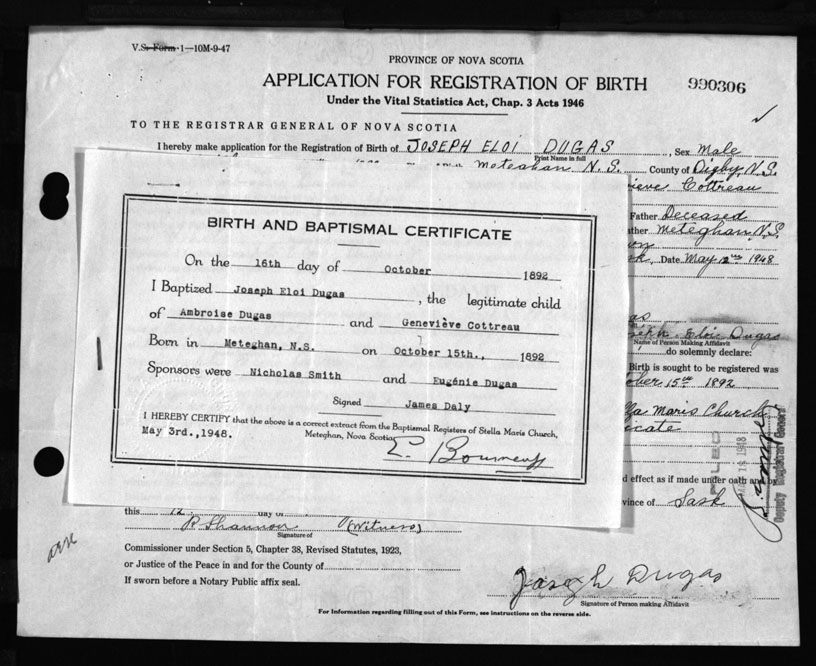 V.S. Form 1—10M-9-47
PROVINCE OF NOVA SCOTIA
APPLICATION FOR REGISTRATION OF BIRTH
990306
Under the Vital Statistics Act, Chap. 3 Acts 1946
TO THE REGISTRAR GENERAL OF NOVA SCOTIA
I hereby make application for the Registration of Birth of JOSEPH ELOI DUGAS, Sex Male
Print Name in full
Meteghan N.S. County of Digby N.S.
Cottreau
Father Deceased
Meteghan, N.S.
Date May 12 1948
BIRTH AND BAPTISMAL CERTIFICATE
On the 16th day of October 1892
I Baptized Joseph Eloi Dugas, the legitimate child
of Ambroise Dugas and Geneviève Cottreau
Born in Meteghan, N.S. on October 15th., 1892
Sponsors were Nicholas Smith and Eugénie Dugas
Signed James Daly
I HEREBY CERTIFY that the above is a correct extract from the Baptismal Registers of Stella Maris Church,
May 3rd., 1948. Meteghan, Nova Scotia
Eloi Dugas
Name of Person Making Affidavit
do solemnly declare:
Birth is sought to be registered was
15th 1892
Maris Church
effect as if made under oath and by
Sask
Deputy Registrar General
this 12 day of
P Shannon (Witness)
Signature of
Commissioner under Section 5, Chapter 38, Revised Statutes, 1923,
or Justice of the Peace in and for the County of
If sworn before a Notary Public affix seal.
Joseph Dugas
Signature of Person making Affidavit
For Information regarding filling out of this Form, see instructions on the reverse side.